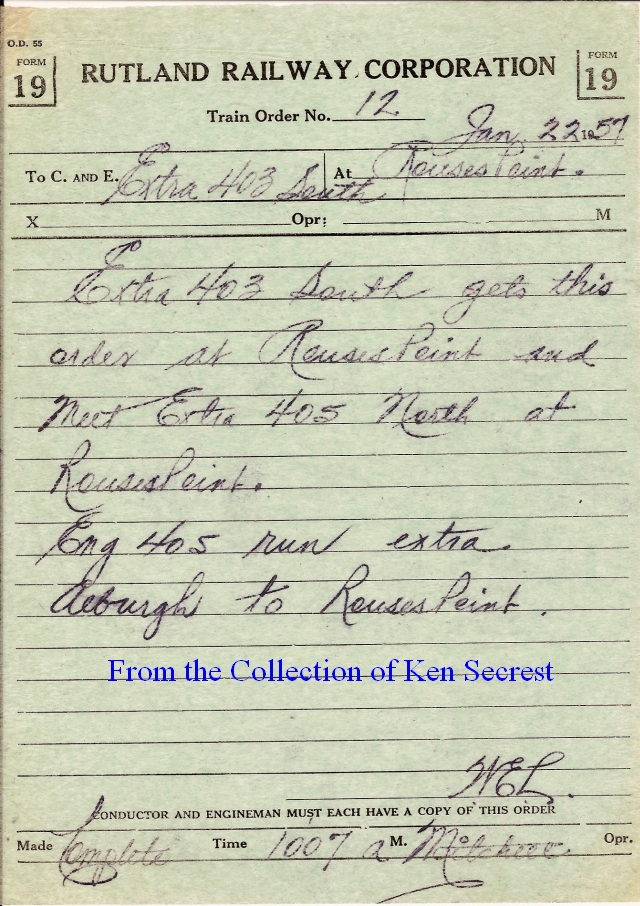 O.D. 55
FORM 19
FORM 19
RUTLAND RAILWAY CORPORATION
Train Order No. 12
Jan 22 1957
To C. AND E. Extra 403 South At Rouses Point.
X Opr: M
Extra 403 South gets this
order at Rouses Point and
Meet Extra 405 North at
Rouses Point.
Eng 405 run extra
Alburgh to Rouses Point.
From the Collection of Ken Secrest
WEL.
CONDUCTOR AND ENGINEMAN MUST EACH HAVE A COPY OF THIS ORDER
Made Complete Time 1007 a M. Opr.